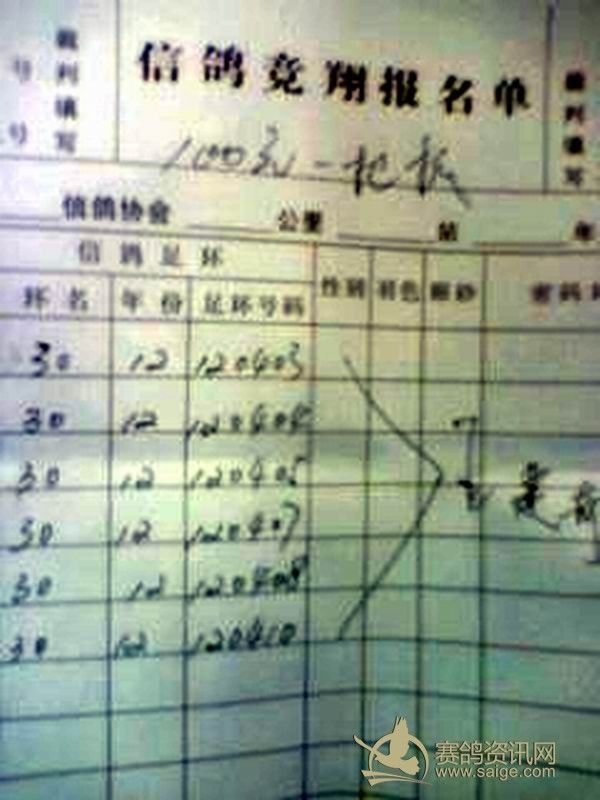 裁判填写
号
号
信鸽竞翔报名单
裁判填写
100元一把
信鸽协会 公里 站 年
信鸽足环
环名 年份 足环号码 性别 羽色 眼砂 密码
30 12 120403
30 12 120404
30 12 120405
30 12 120407
30 12 120408
30 12 120410
赛鸽资讯网
www.saige.com